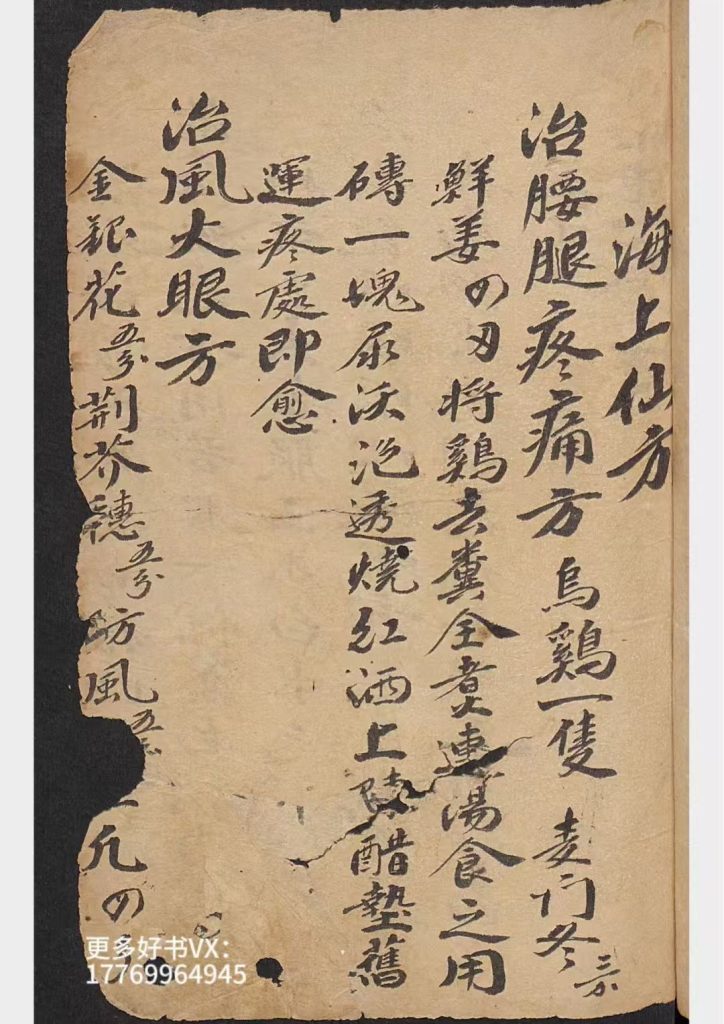 海上仙方
治腰腿疼痛方 烏鷄一隻 麦门冬
鲜姜四刄将鷄去糞全煮連湯食之用
磚一塊尿沃泡透燒红洒上陳醋墊舊
運疼處即愈
治風火眼方
金銀花五分荆芥穗五分防風五
更多好书VX:
17769964945